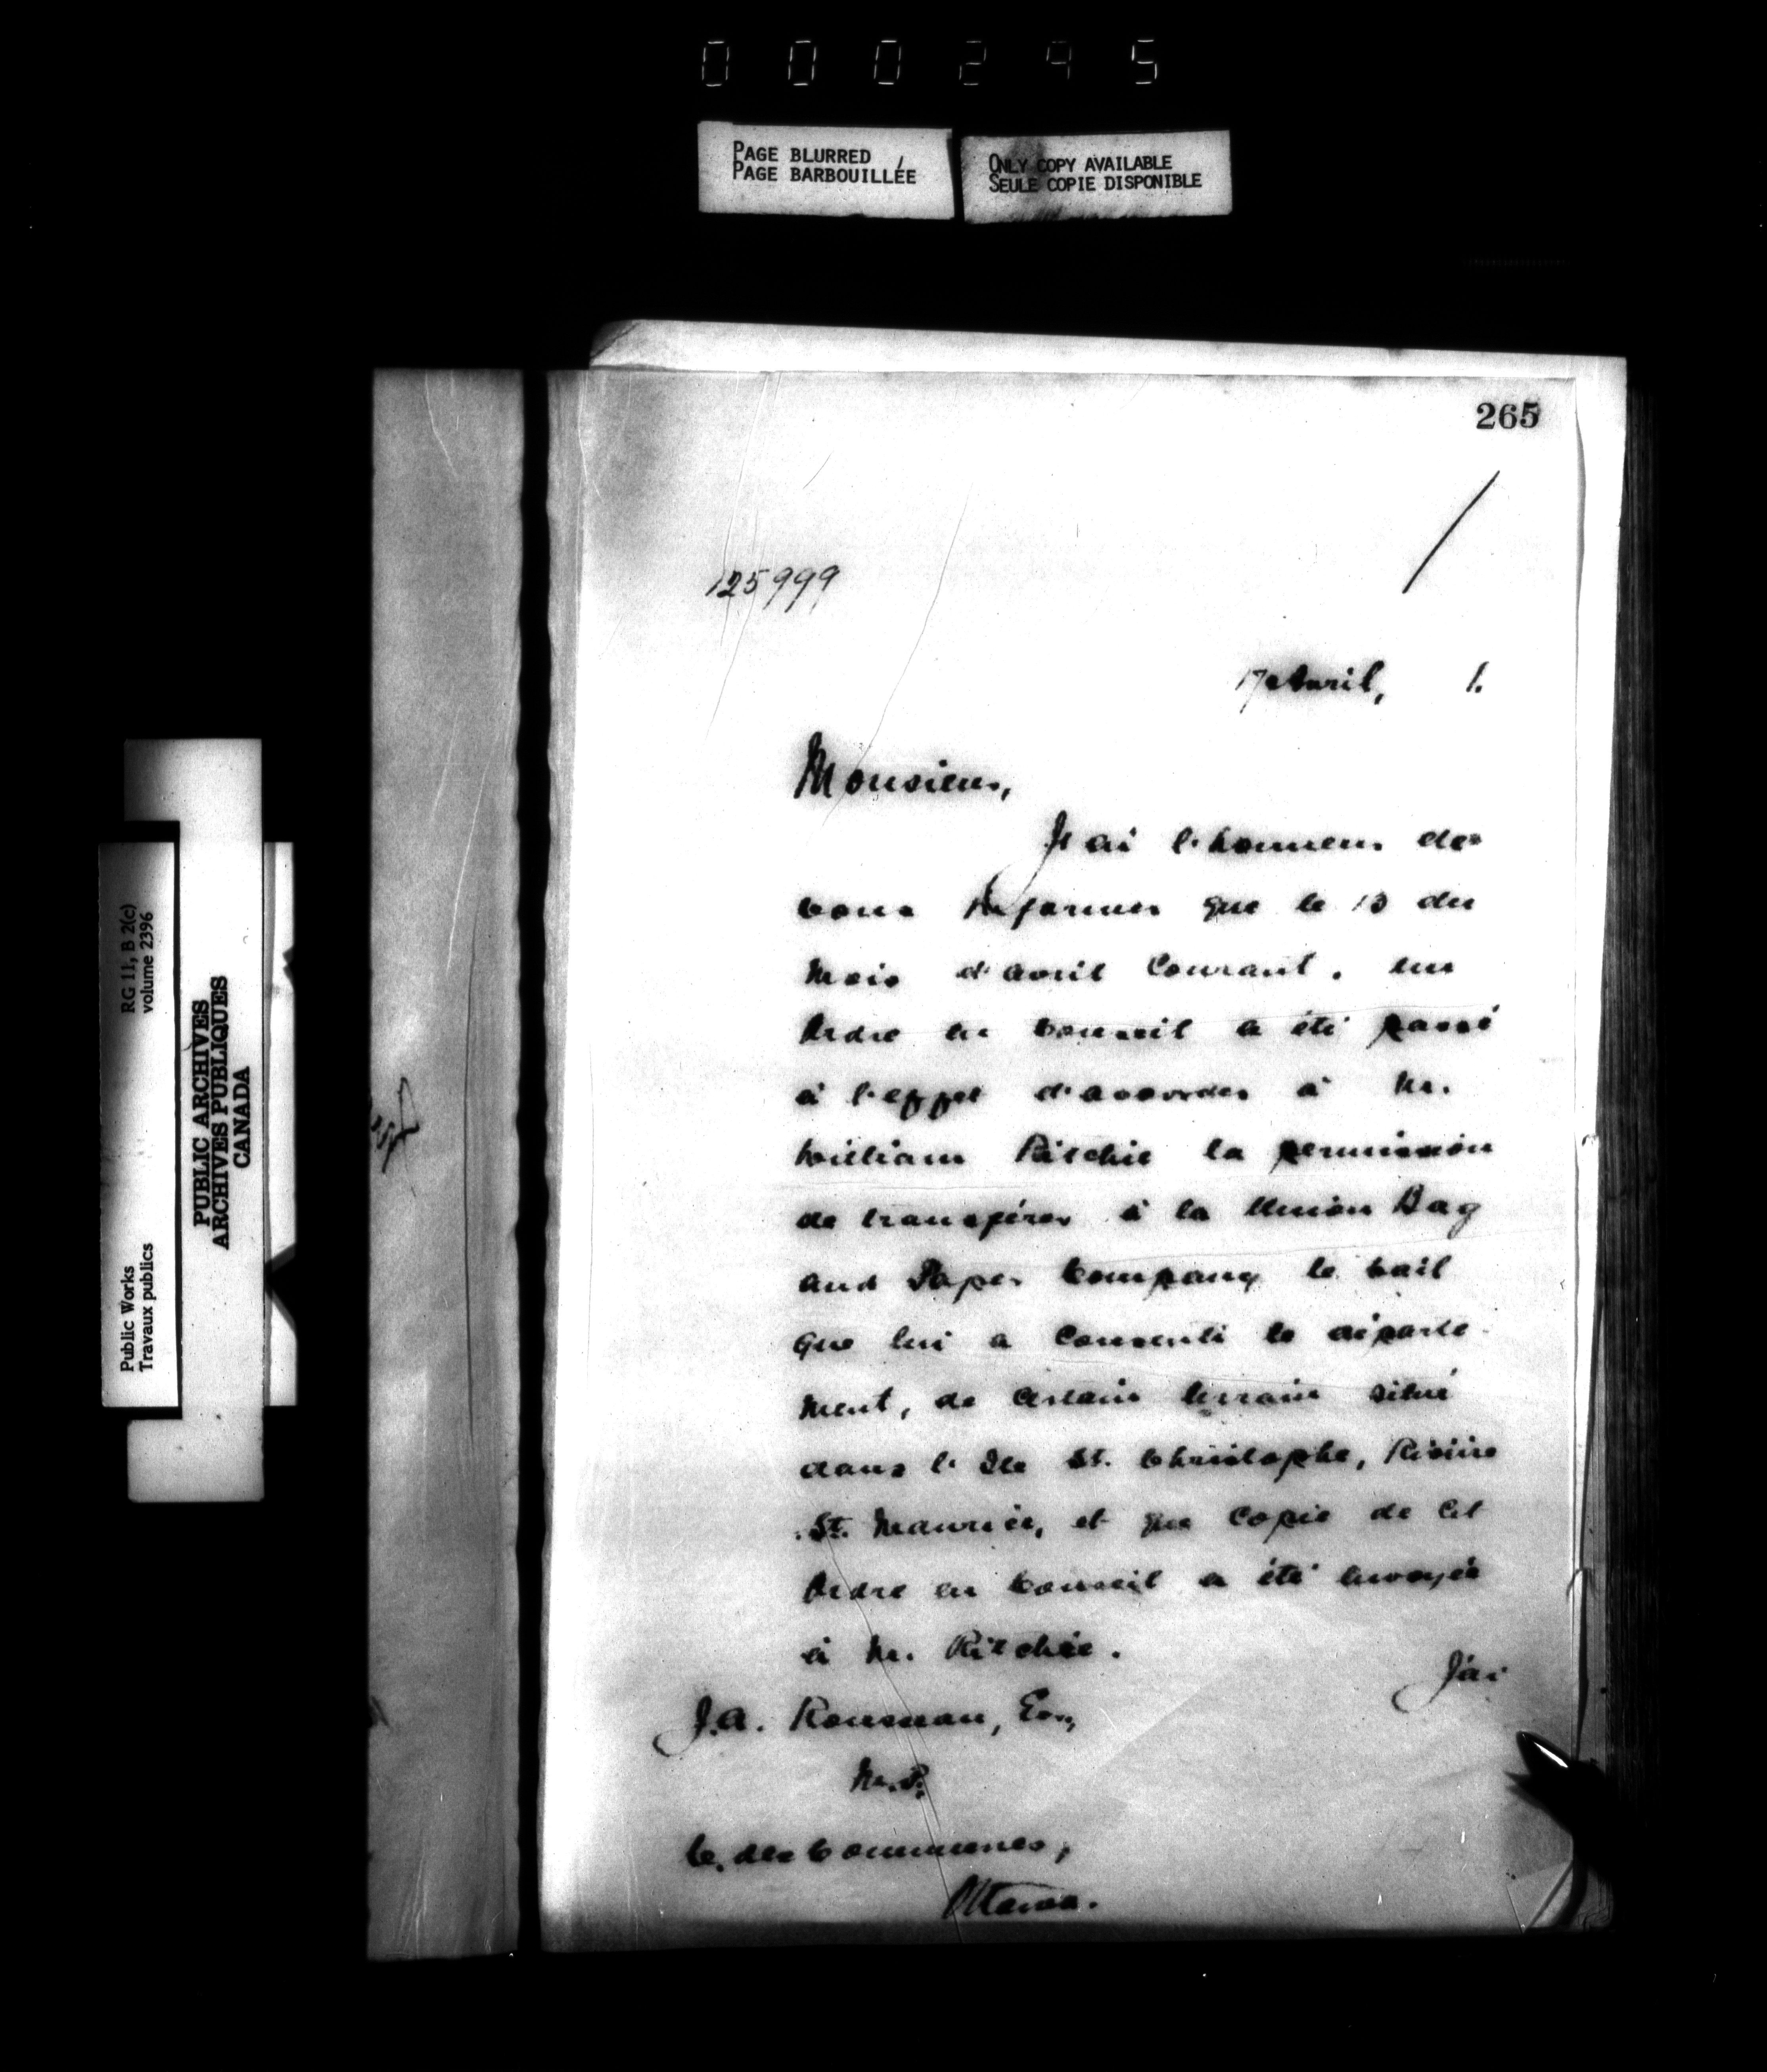 000295
PAGE BLURRED
PAGE BARBOUILLÉE
ONLY COPY AVAILABLE
SEULE COPIE DISPONIBLE
265
125999
17 Avril, 1.
Monsieur,
J'ai l'honneur de
vous informer que le 13 du
mois d'avril courant, un
Ordre en Conseil a été passé
à l'effet d'accorder à M.
William Ritchie la permission
de transférer à la Union Bag
and Paper Company le bail
que lui a consenti le départe-
ment, de certain terrain situé
dans l'Ile St. Christophe, Rivière
St. Maurice, et que copie de cet
Ordre en Conseil a été envoyée
à M. Ritchie.
J'ai
J.A. Rousseau, Esq,
M.P.
C. des Communes,
Ottawa.
Public Works
Travaux publics
RG 11, B 2(c)
volume 2396
PUBLIC ARCHIVES
ARCHIVES PUBLIQUES
CANADA